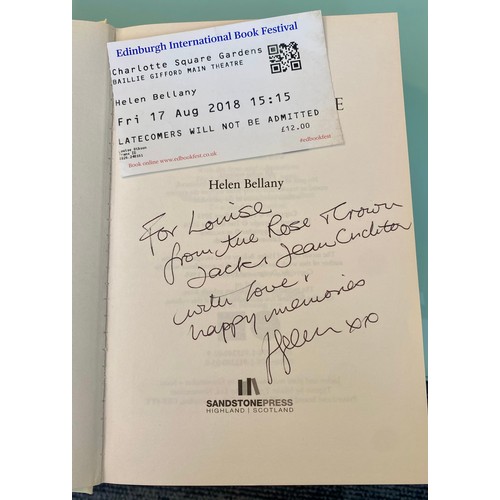 Edinburgh International Book Festival
Charlotte Square Gardens
BAILLIE GIFFORD MAIN THEATRE
Helen Bellany
Fri 17 Aug 2018 15:15
LATECOMERS WILL NOT BE ADMITTED
£12.00
Book online www.edbookfest.co.uk
#edbookfest
E
Helen Bellany
For Louise
from the Rose & Crown
Jack & Jean Crichton
with love &
happy memories
Helen xx
SANDSTONEPRESS
HIGHLAND | SCOTLAND